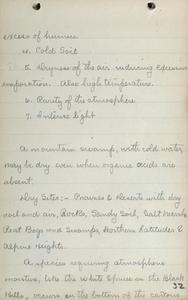 excess of humus.
4. Cold Soil
5. Dryness of the air inducing excessive
evaporation. Also high temperature.
6. Rarity of the atmosphere
7. Intense light
A mountain swamp, with cold water
may be dry even when organic acids are
absent.
Dry Sites:- Prairies & Deserts with dry
soil and air, Rocks, Sandy Soil, Salt Marsh
Peat Bogs and Swamps, Northern Latitudes &
Alpine Heights.
A species requiring atmospheric
moisture, like the White Spruce in the Black
Hills, occurs in the bottom of the
32